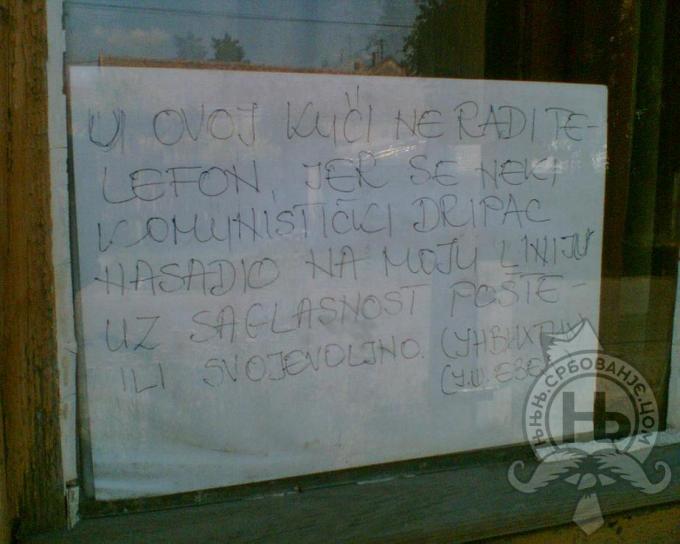 U OVOJ KUĆI NE RADI TE-
LEFON, JER SE NEKI
KOMUNISTIČKI DRIPAC
NASADIO NA MOJU LINIJU
UZ SAGLASNOST POŠTE -
ILI SVOJEVOLJNO.
ЊЊЊ.СРБОВАЊЕ.ЦОМ
Њ